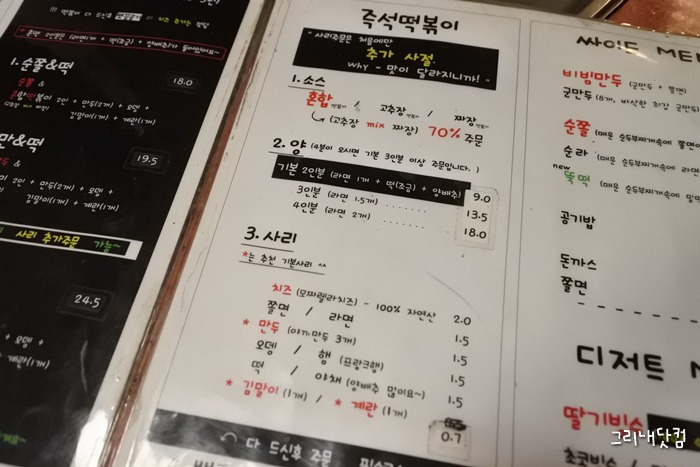 1. 순쫄&떡
18.0
19.5
사리 추가주문 가능~
24.5
즉석떡볶이
" 사리주문은 처음에만
추가 사절.
why - 맛이 달라지니까! "
1. 소스
혼합떡볶이 / 고추장떡볶이 / 짜장떡볶이
(고추장 mix 짜장) 70% 주문
2. 양 (4분이 오시면 기본 3인분 이상 주문입니다.)
기본 2인분 (라면 1개 + 떡(조금) + 양배추) 9.0
3인분 (라면 1.5개) ........ 13.5
4인분 (라면 2개) ....... 18.0
3. 사리
*는 추천 기본사리 ^^
치즈 (모짜렐라치즈) - 100% 자연산 2.0
쫄면 / 라면 1.5
* 만두 (야끼만두 3개) 1.5
오뎅 / 햄 (프랑크햄) 1.5
떡 / 야채 (양배추 많이요~) 1.5
* 김말이 (1개) / * 계란 (1개) 0.7
다 드신후 주문
싸이드 ME
비빔만두 (군만두 + 쫄면)
군만두
순쫄 (매운 순두부찌개속에 쫄면
순라 (매운 순두부찌개속에 라면
new
뚝떡 (매운 순두부찌개속에 밀떡
공기밥
돈까스
쫄면
디저트
딸기빙스
초코빙스
그리내닷컴